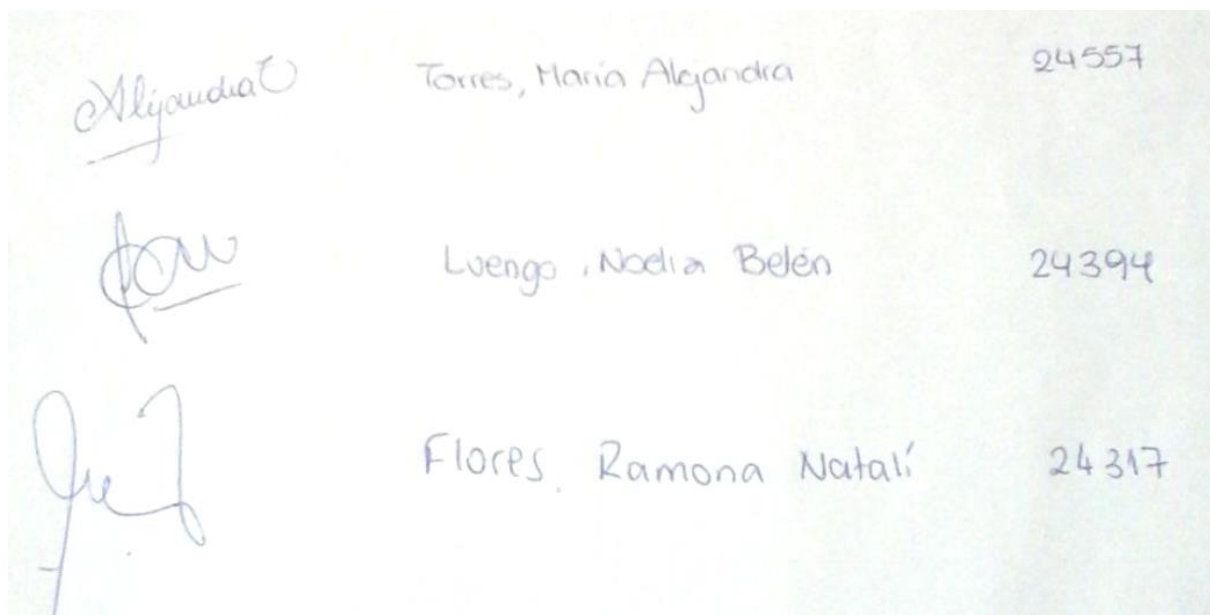 AlejandraT Torres, María Alejandra 24557
Luengo, Noelia Belén 24394
Flores, Ramona Natalí 24317